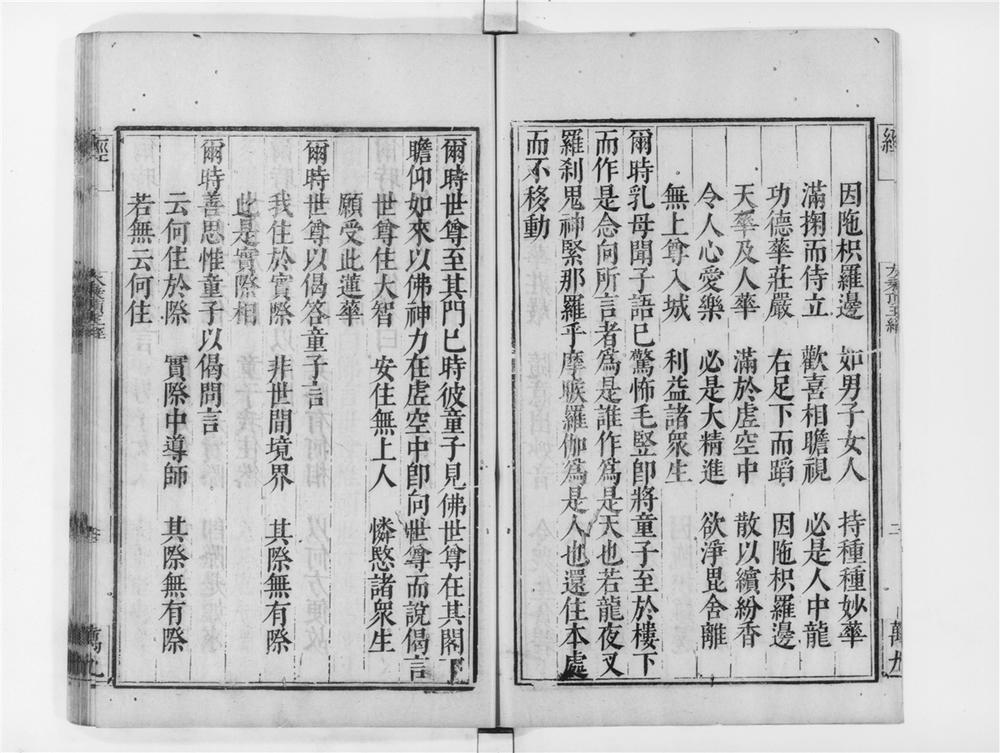 因陁枳羅邊　如男子女人　持種種妙華
滿掬而侍立　歡喜相瞻視　必是人中龍
功德華莊嚴　右足下而蹈　因陁枳羅邊
天華及人華　滿於虛空中　散以繽紛香
令人心愛樂　必是大精進　欲淨毘舍離
無上尊入城　利益諸衆生
爾時乳母聞子語已驚怖毛竪卽將童子至於樓下
而作是念向所言者爲是誰作爲是天也若龍夜叉
羅刹鬼神緊那羅乎摩睺羅伽爲是人也還住本處
而不移動
大乘頂王經
二
萬九
爾時世尊至其門已時彼童子見佛世尊在其閣下
瞻仰如來以佛神力在虛空中卽向世尊而說偈言
世尊住大智　安住無上人　憐愍諸衆生
願受此蓮華
爾時世尊以偈答童子言
我住於實際　非世間境界　其際無有際
此是實際相
爾時善思惟童子以偈問言
云何住於際　實際中導師　其際無有際
若無云何住
經
萬九